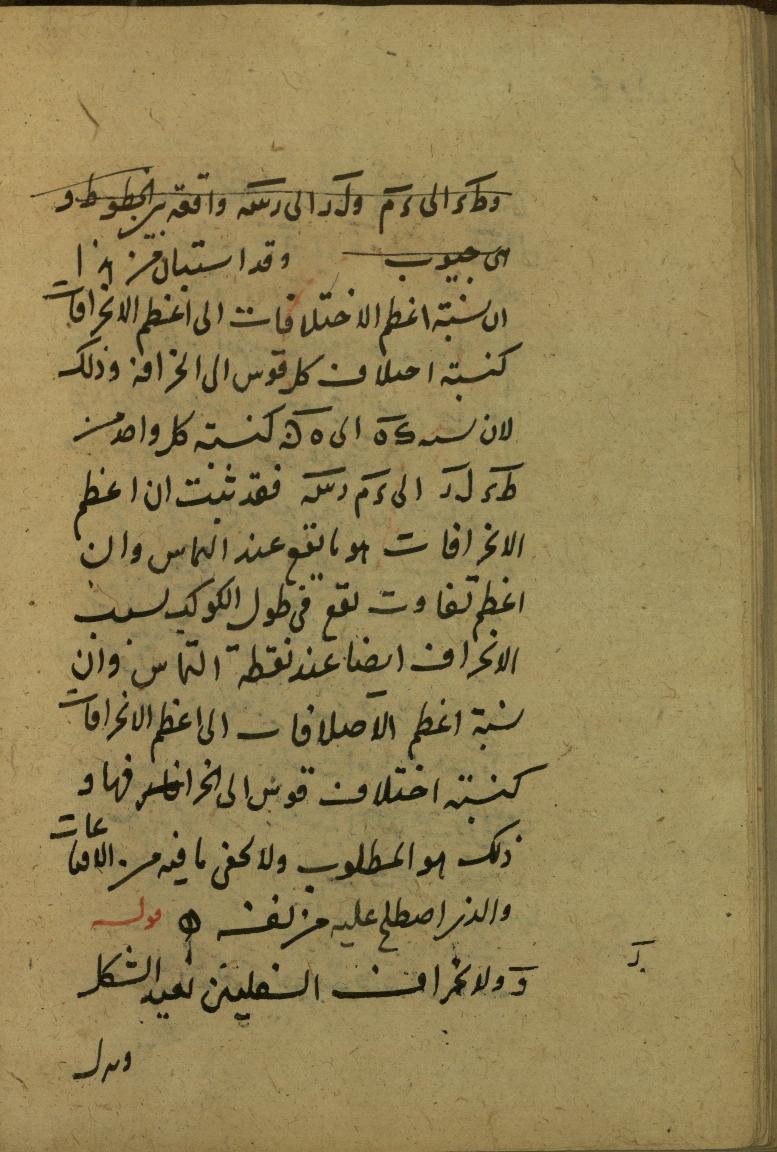 وطء الى ءم ولر الى رسه واقعة بين الخطوط و
هى جيوب وقد استبان من هذا
ان نسبة اعظم الاختلافات الى اعظم الانحرافات
كنسبة اختلاف كل قوس الى انحرافه وذلك
لان نسبة ى ه الى ه كنسبة كل واحد من
طء لر الى ءم رسه فقد ثبت ان اعظم
الانحرافات هو ما يقع عند التماس وان
اعظم تفاوت يقع فى طول الكوكب بسبب
الانحراف ايضا عند نقطة التماس وان
نسبة اعظم الاختلافات الى اعظم الانحرافات
كنسبة اختلاف قوس الى انحرافها و
ذلك هو المطلوب ولا يخفى ما فيه من
والذى اصطلح عليه من نفسه قوله
و ولانحراف السفليين نعيد الشكل
ز